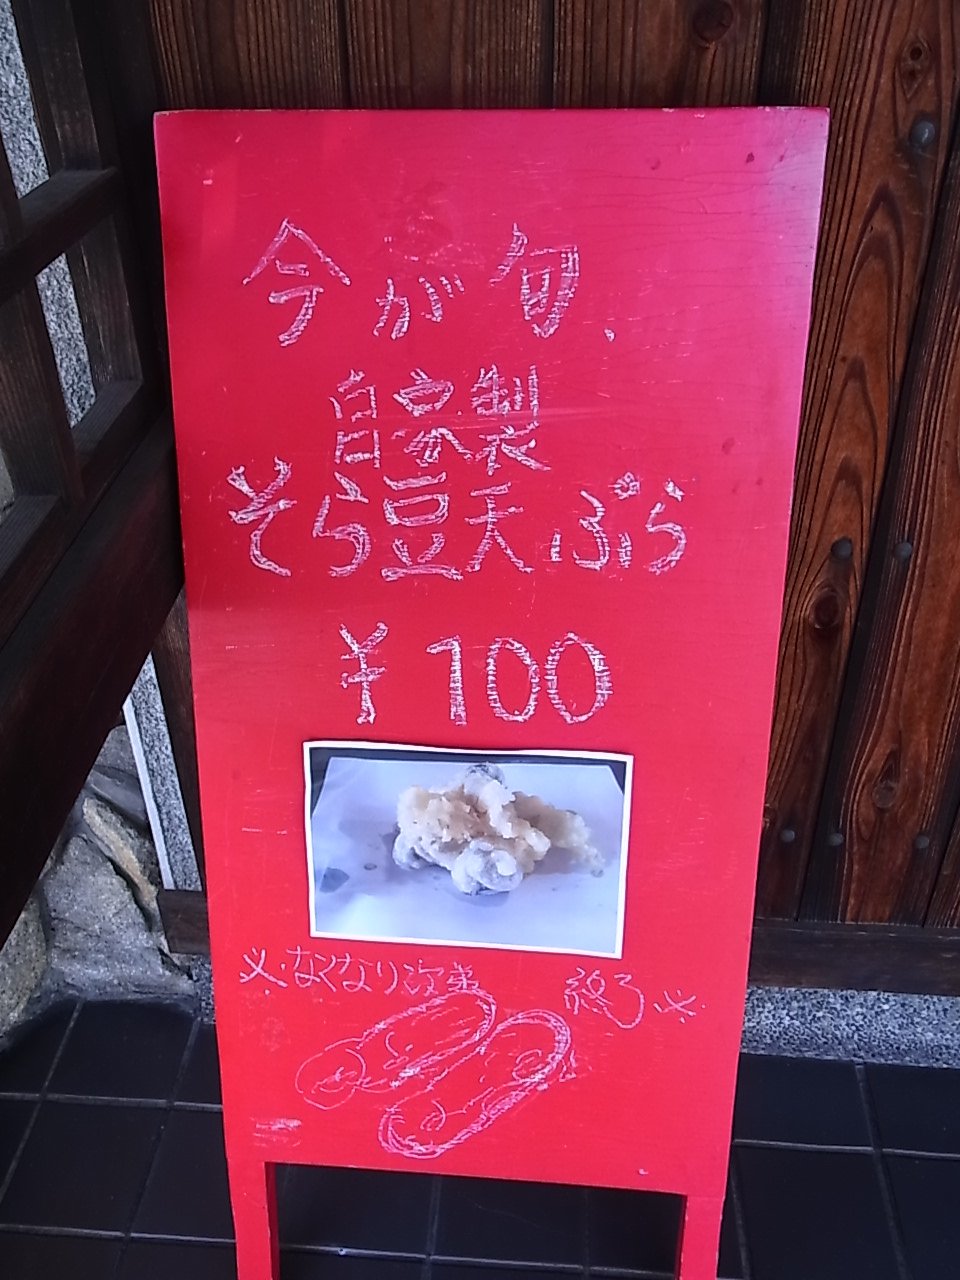 今が旬、
自家製
そら豆天ぷら
¥100
※なくなり次第 終了※